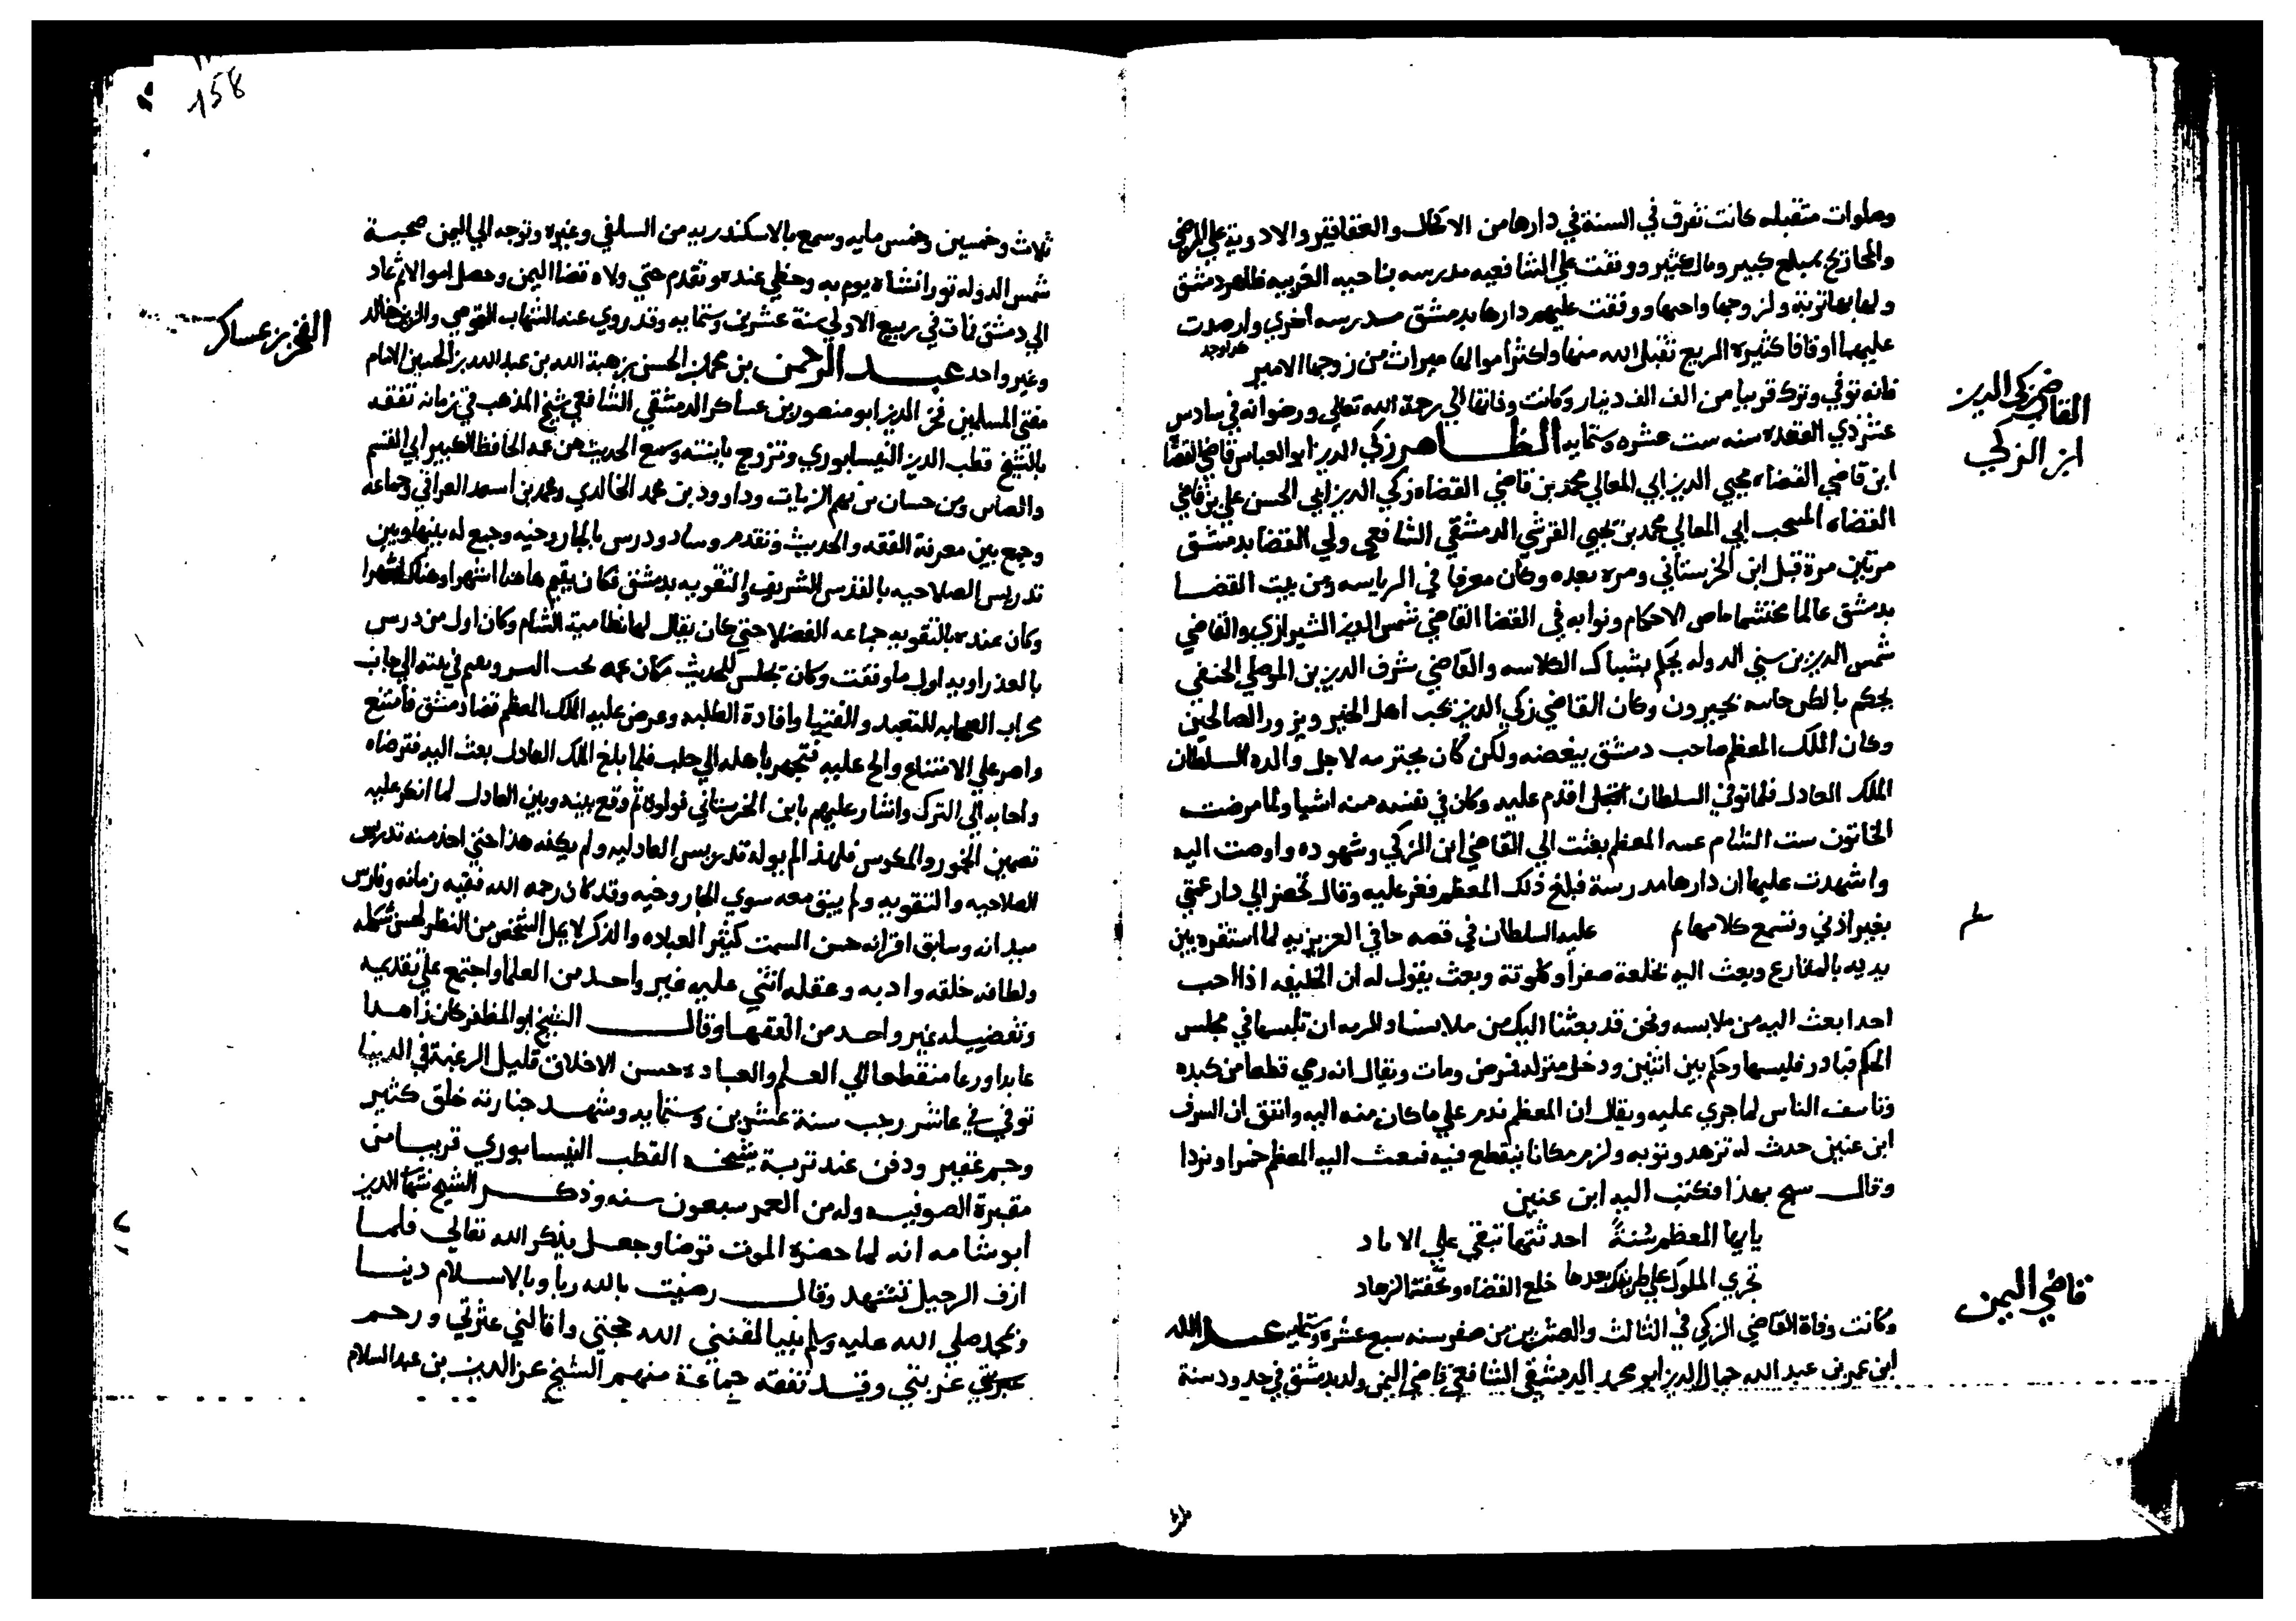 وصلوات متقبله كانت تفرق في السنة في دارها من الاكحال والعقاقير والادوية علي المرضي
والمحاريج بمبلغ كبير وبالعثير ووقفت علي الشافعيه مدرسه بناحيه الغربيه ظاهر دمشق
ولها بها تربه ولزوجها واخيها ووقفت عليهم دارها بدمشق مدرسه اخري وارصدت
عليهما اوقافا كثيره الريع تقبل الله منها واكثر اموالها ميراث من زوجها الامير
فانه توفي وترك قريبا من الف الف دينار وكانت وفاتها الي رحمة الله تعالي ورضوانه في سادس
عشر ذي القعده سنه ست عشره وستمايه الطاهر زكي الدين ابو العباس قاضي القضاه
القاضي زكي الدين
ابن الزكي
ابن قاضي القضاه محيي الدين ابي المعالي محمد بن قاضي القضاه زكي الدين ابي الحسن علي بن قاضي
القضاه المنتجب ابي المعالي محمد بن يحيي القرشي الدمشقي الشافعي ولي القضا بدمشق
مرتين مرة قبل ابن الحرستاني ومره بعده وكان معرقا في الرياسه ومن بيت القضا
بدمشق عالما محتشما ماض الاحكام ونوابه في القضا القاضي شمس الدين الشيرازي والقاضي
شمس الدين بن سني الدوله يحكم بشباك الكلاسه والقاضي شرف الدين بن الموصلي الحنفي
يحكم بالطرخانيه بجيرون وكان القاضي زكي الدين يحب اهل الخير ويزور الصالحين
وكان الملك المعظم صاحب دمشق يبغضه ولكن كان يحترمه لاجل والده السلطان
الملك العادل فلما توفي السلطان اقدم عليه وكان في نفسه منه اشيا ولما مرضت
الخاتون ست الشام عمه المعظم بعثت الي القاضي ابن الزكي وشهوده واوصت اليه
واشهدت عليها ان دارها مدرسة فبلغ ذلك المعظم فعز عليه وقال تحضر الي دار عمتي
بغير اذني وتسمع كلامها عليه السلطان في قصه جابي العزيزيه لما استقره بين
يديه بالمقارع وبعث اليه بخلعة صفرا وكلوتة وبعث يقول له ان الخليفه اذا احب
احدا بعث اليه من ملابسه ونحن قد بعثنا اليك من ملابسنا والزمه ان تلبسها في مجلس
الحكم فبادر فلبسها وحكم بين اثنين ودخل منزله فمرض ومات ويقال انه رمي قطعا من كبده
وتاسف الناس لما جري عليه ويقال ان المعظم ندم علي ما كان منه اليه واتفق ان الشرف
ابن عنين حدث له تزهد وتوبه ولزم مكانا ينقطع فيه فبعث اليه المعظم خمرا ونردا
وقال سبح بهذا فكتب اليه ابن عنين
يا ايها المعظم سُنةً احدثتها تبقي علي الاباد
تجري الملوك علي طريقك بعدها خلع القضاه وتحفة الزهاد
وكانت وفاة القاضي الزكي في الثالث والعشرين من صفر سنه سبع عشره وستمايه عبد الله
قاضي اليمن
ابن عمر بن عبد الله جمال الدين ابو محمد الدمشقي الشافعي قاضي اليمن ولد بدمشق في حدود سنة
158
ثلاث وخمسين وخمس مايه وسمع بالاسكندريه من السلفي وغيره وتوجه الي اليمن صحبة
شمس الدوله توران شاه بن ايوب وحظي عنده وتقدم حتي ولاه قضا اليمن وحصل اموالا ثم عاد
الي دمشق فمات في ربيع الاول سنة عشرين وستمايه وقد روي عنه الشهاب القوصي والزين خالد
الفخر بن عساكر
وغير واحد عبد الرحمن بن محمد بن الحسن بن هبة الله بن عبد الله بن الحسين الامام
مفتي المسلمين فخر الدين ابو منصور بن عساكر الدمشقي الشافعي شيخ المذهب في زمانه تفقه
بالشيخ قطب الدين النيسابوري وتزوج بابنته وسمع الحديث من عمه الحافظ الكبير ابي القسم
والصاين ومن حسان بن تميم الزيات وداوود بن محمد الخالدي ومحمد بن اسعد العراقي وجماعه
وجمع بين معرفة الفقه والحديث وتقدم وساد ودرس بالجاروخيه وجمع له بينها وبين
تدريس الصلاحيه بالقدس الشريف والتقويه بدمشق فكان يقيم هاهنا اشهرا وهناك اشهرا
وكان عنده بالتقويه جماعه الفضلا حتي كان يقال لها نظامية الشام وكان اول من درس
بالعذراويه اول ما وقفت وكان يجلس للحديث مكان عمه تحت النسر ويقيم في بيته الي جانب
محراب الصحابه للتعبد والفتيا وافادة الطلبه وعرض عليه الملك المعظم قضا دمشق فامتنع
واصر علي الامتناع والح عليه فتجهز باهله الي حلب فلما بلغ الملك العادل بعث اليه فترضاه
واجابه الي الترك واشار عليهم بابن الحرستاني فولوه ثم وقع بينه وبين العادل لما انكر عليه
تضمين الخمور والمكوس فلهذا لم يوله تدريس العادليه ولم يكفه هذا حتي اخذ منه تدريس
الصلاحيه والتقويه ولم يبق معه سوي الجاروخيه وقد كان رحمه الله فقيه زمانه وفارس
ميدانه وسابق اقرانه حسن السمت كثير العباده والذكر لا يمل الشخص من النظر لحسن شكله
ولطافه خلقه وادبه وعقله اثني عليه غير واحد من العلما واجتمع علي تقديمه
وتفضيله غير واحد من الفقها وقال الشيخ ابو المظفر كان زاهدا
عابدا ورعا منقطعا الي العلم والعباده حسن الاخلاق قليل الرغبة في الدينا
توفي في عاشر رجب سنة عشرين وستمايه وشهد جنازته خلق كثير
وجم غفير ودفن عند تربة شيخه القطب النيسابوري قريبا من
مقبرة الصوفيه وله من العمر سبعون سنه وذكر الشيخ شهاب الدين
ابو شامه انه لما حضره الموت توضا وجعل يذكر الله تعالي فلما
ازف الرحيل تشهد وقال رضيت بالله ربا وبالاسلام دينا
وبمحمد صلي الله عليه وسلم نبيا لقنني الله حجتي واقالني عثرتي ورحم
غربتي وقد تفقه جماعة منهم الشيخ عز الدين بن عبد السلام